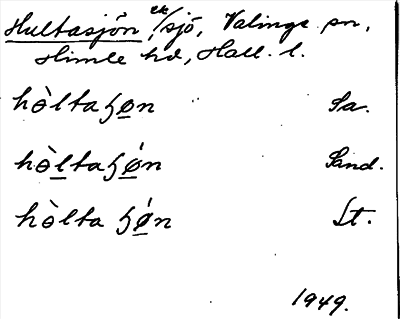 Hultasjön, ek/sjö, Valinge sn,
Himle hd, Hall. l.
hòltaɧøn Sa.
hòltaɧǿn Sand.
hòlta ɧǿn St.
1949.